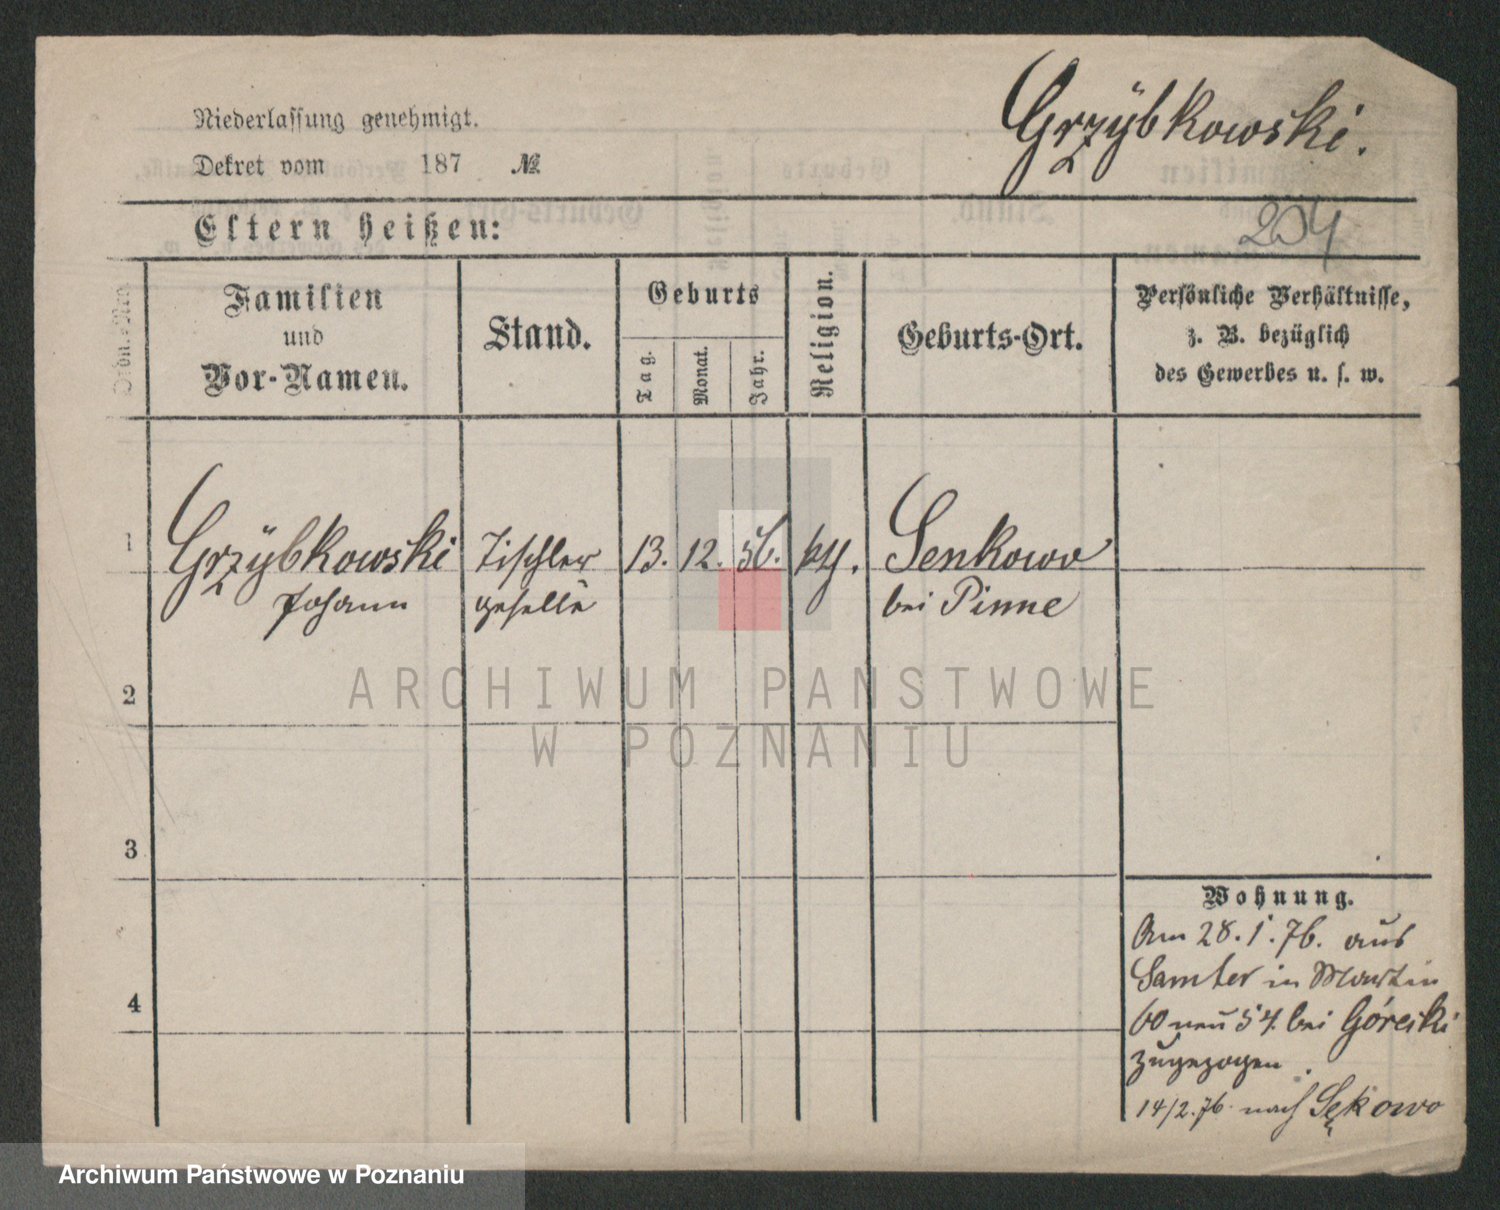 Grzÿbkowski.
Niederlassung genehmigt.
Dekret vom 187 №
204
Eltern heißen:
Ordn.-Nro.
Familien
und
Vor-Namen.
Stand.
Geburts
Tag.
Monat.
Jahr.
Religion.
Geburts-Ort.
Persönliche Verhältnisse,
z. B. bezüglich
des Gewerbes u. s. w.
1
Grzÿbkowski Tischler 13. 12. 56. kth. Senkowo
Johann geselle bei Pinne
2
3
4
Wohnung.
Am 28.1.76. aus
Samter in Martin
60 neu 54. bei Górecki
zugezogen.
14/2.76. nach Sękowo
ARCHIWUM PAŃSTWOWE
W POZNANIU
Archiwum Państwowe w Poznaniu